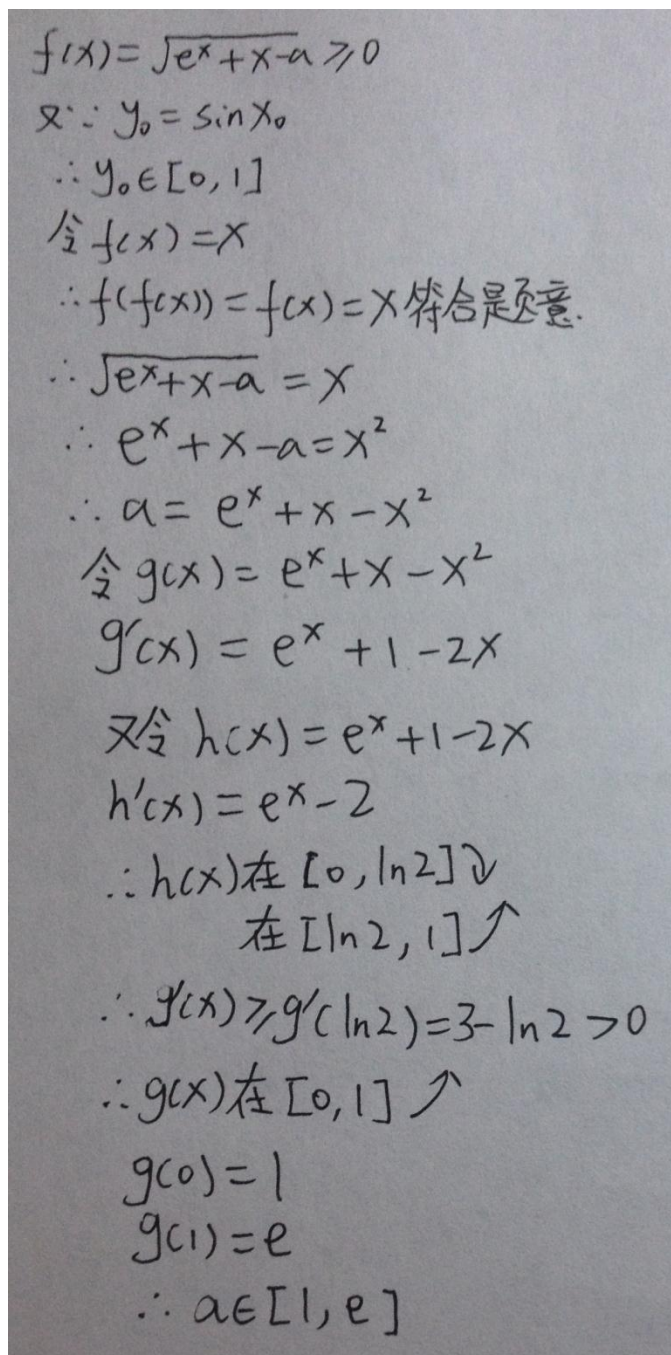 f(x)=√(eˣ+x-a)≥0
又∵ y₀=sinx₀
∴y₀∈[0,1]
令f(x)=x
∴f(f(x))=f(x)=x符合是题意.
∴√(eˣ+x-a)=x
∴eˣ+x-a=x²
∴a=eˣ+x-x²
令g(x)=eˣ+x-x²
g'(x)=eˣ+1-2x
又令h(x)=eˣ+1-2x
h'(x)=eˣ-2
∴h(x)在[0,ln2]↘
在[ln2,1]↗
∴g'(x)≥g'(ln2)=3-ln2>0
∴g(x)在[0,1]↗
g(0)=1
g(1)=e
∴a∈[1,e]